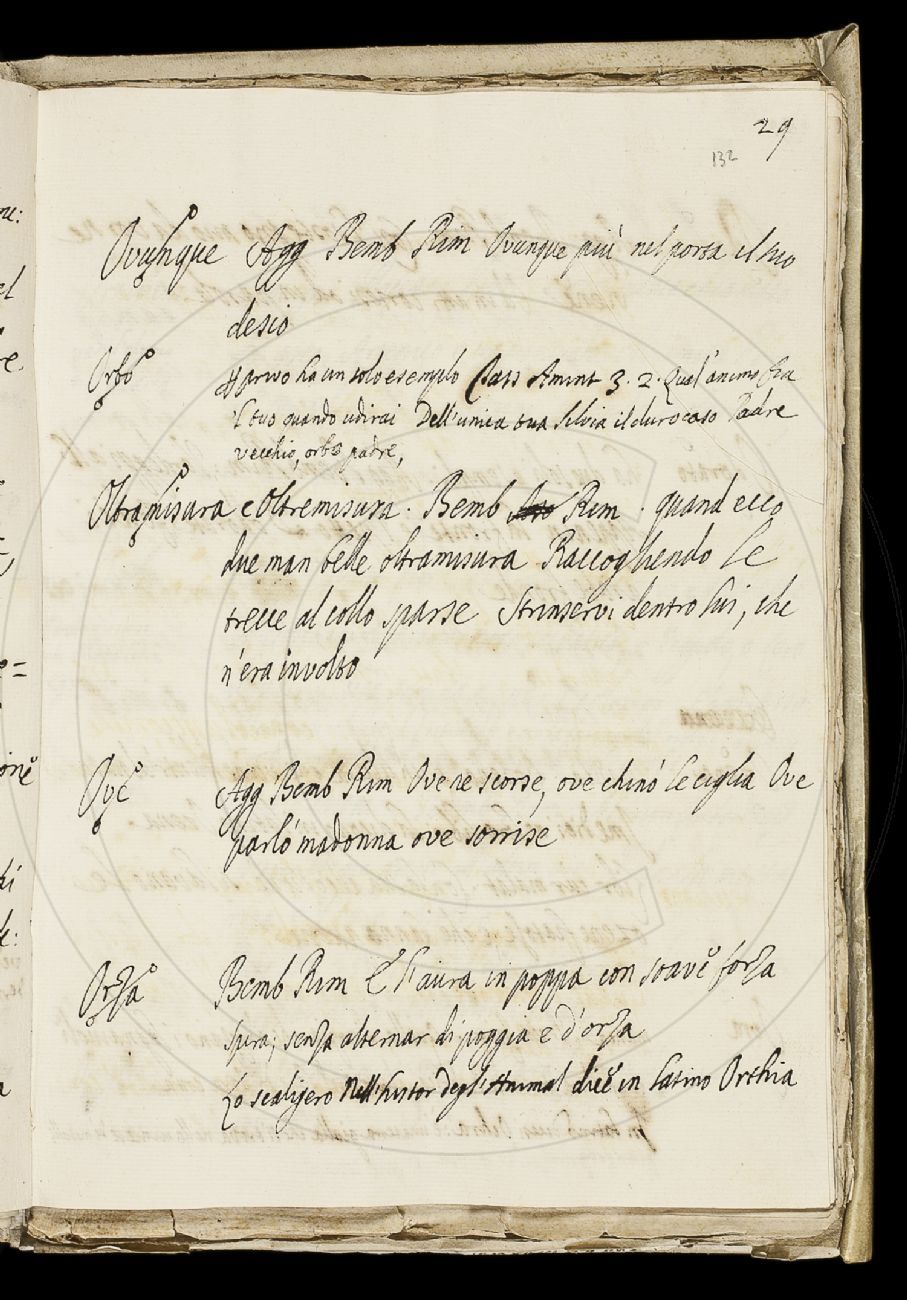 29
132
Ovunque Agg Bemb Rim Ovunque più nel porta il suo
desio
Orbo Approvo ha un solo esempio Tass Amint 3. 2. Qual' animo fia
'l tuo quando udirai Dell' unica tua Silvia il duro caso Padre
vecchio, orbo padre,
Oltramisura e Oltremisura. Bemb Rim. quand ecco
due man belle oltramisura Raccogliendo le
trecce al collo sparse Strinservi dentro lui, che
n'era involto
Ove Agg Bemb Rim Ove ne scorse, ove chinò le ciglia Ove
parlò madonna ove sorrise
Orza Bemb Rim E l'aura in poppa con soave forza
spira; senza alternar di poggia e d'orza
Lo scaligero Nell'histor degl'Animal dice in latino Orthia